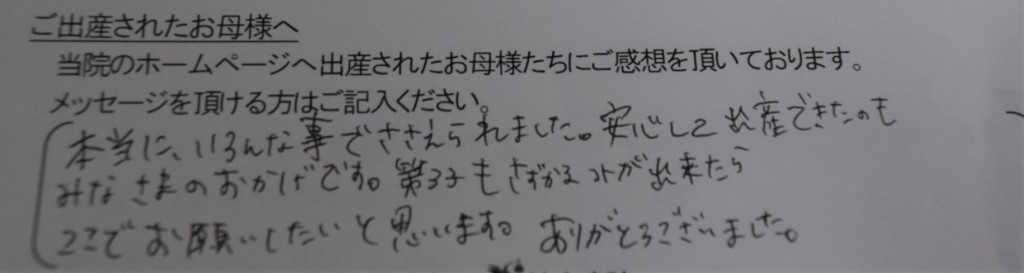 ご出産されたお母様へ
当院のホームページへ出産されたお母様たちにご感想を頂いております。
メッセージを頂ける方はご記入ください。
本当に、いろんな事でささえられました。安心して出産できたのも
みなさまのおかげです。第3子もさずかるコトが出来たら
ここでお願いしたいと思います。ありがとうございました。